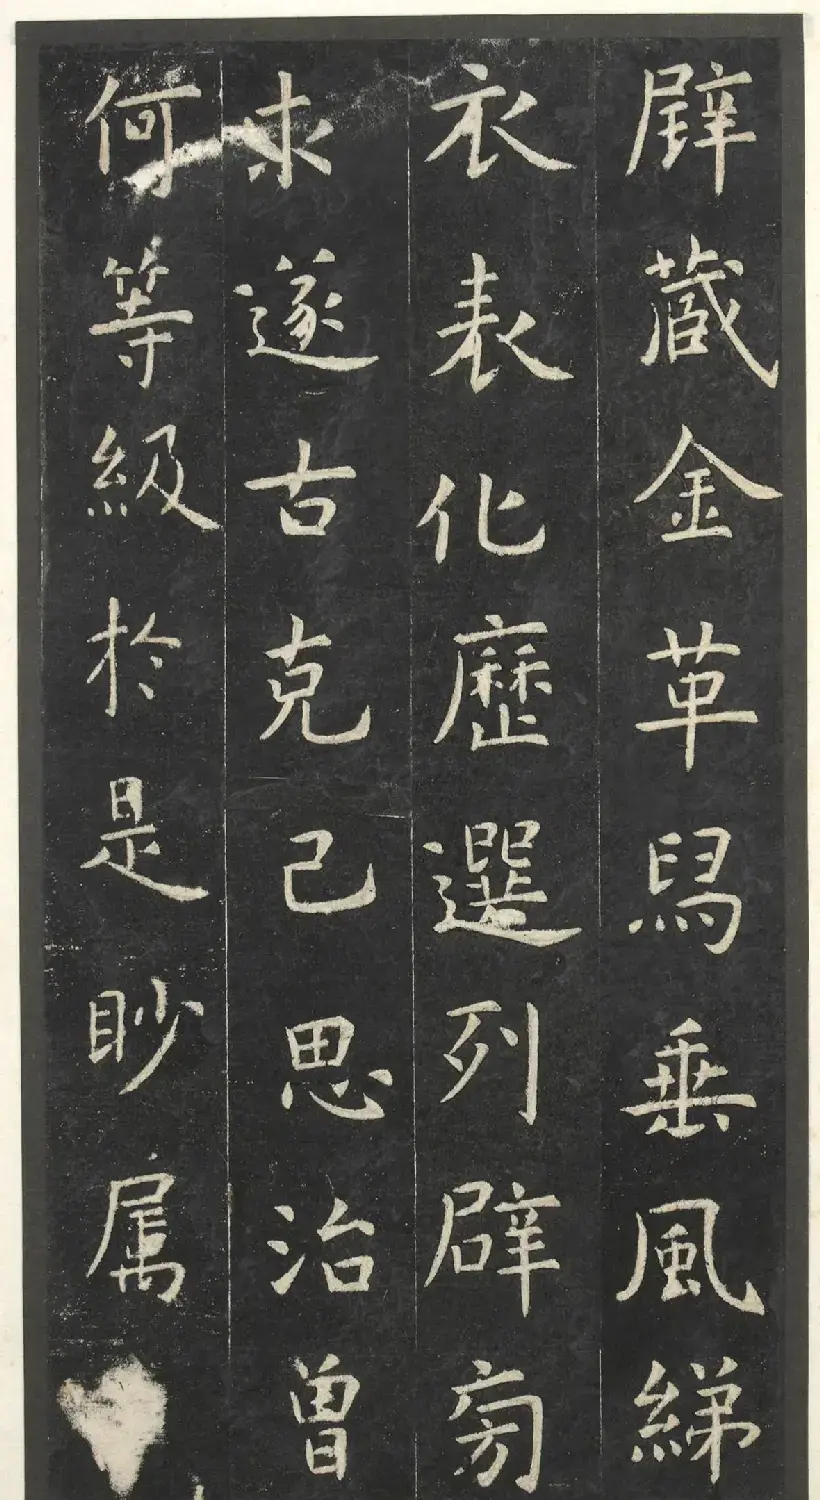 璧藏金革舄垂風綈
衣表化歷選列辟旁
求遂古克己思治曾
何等級於是眇属